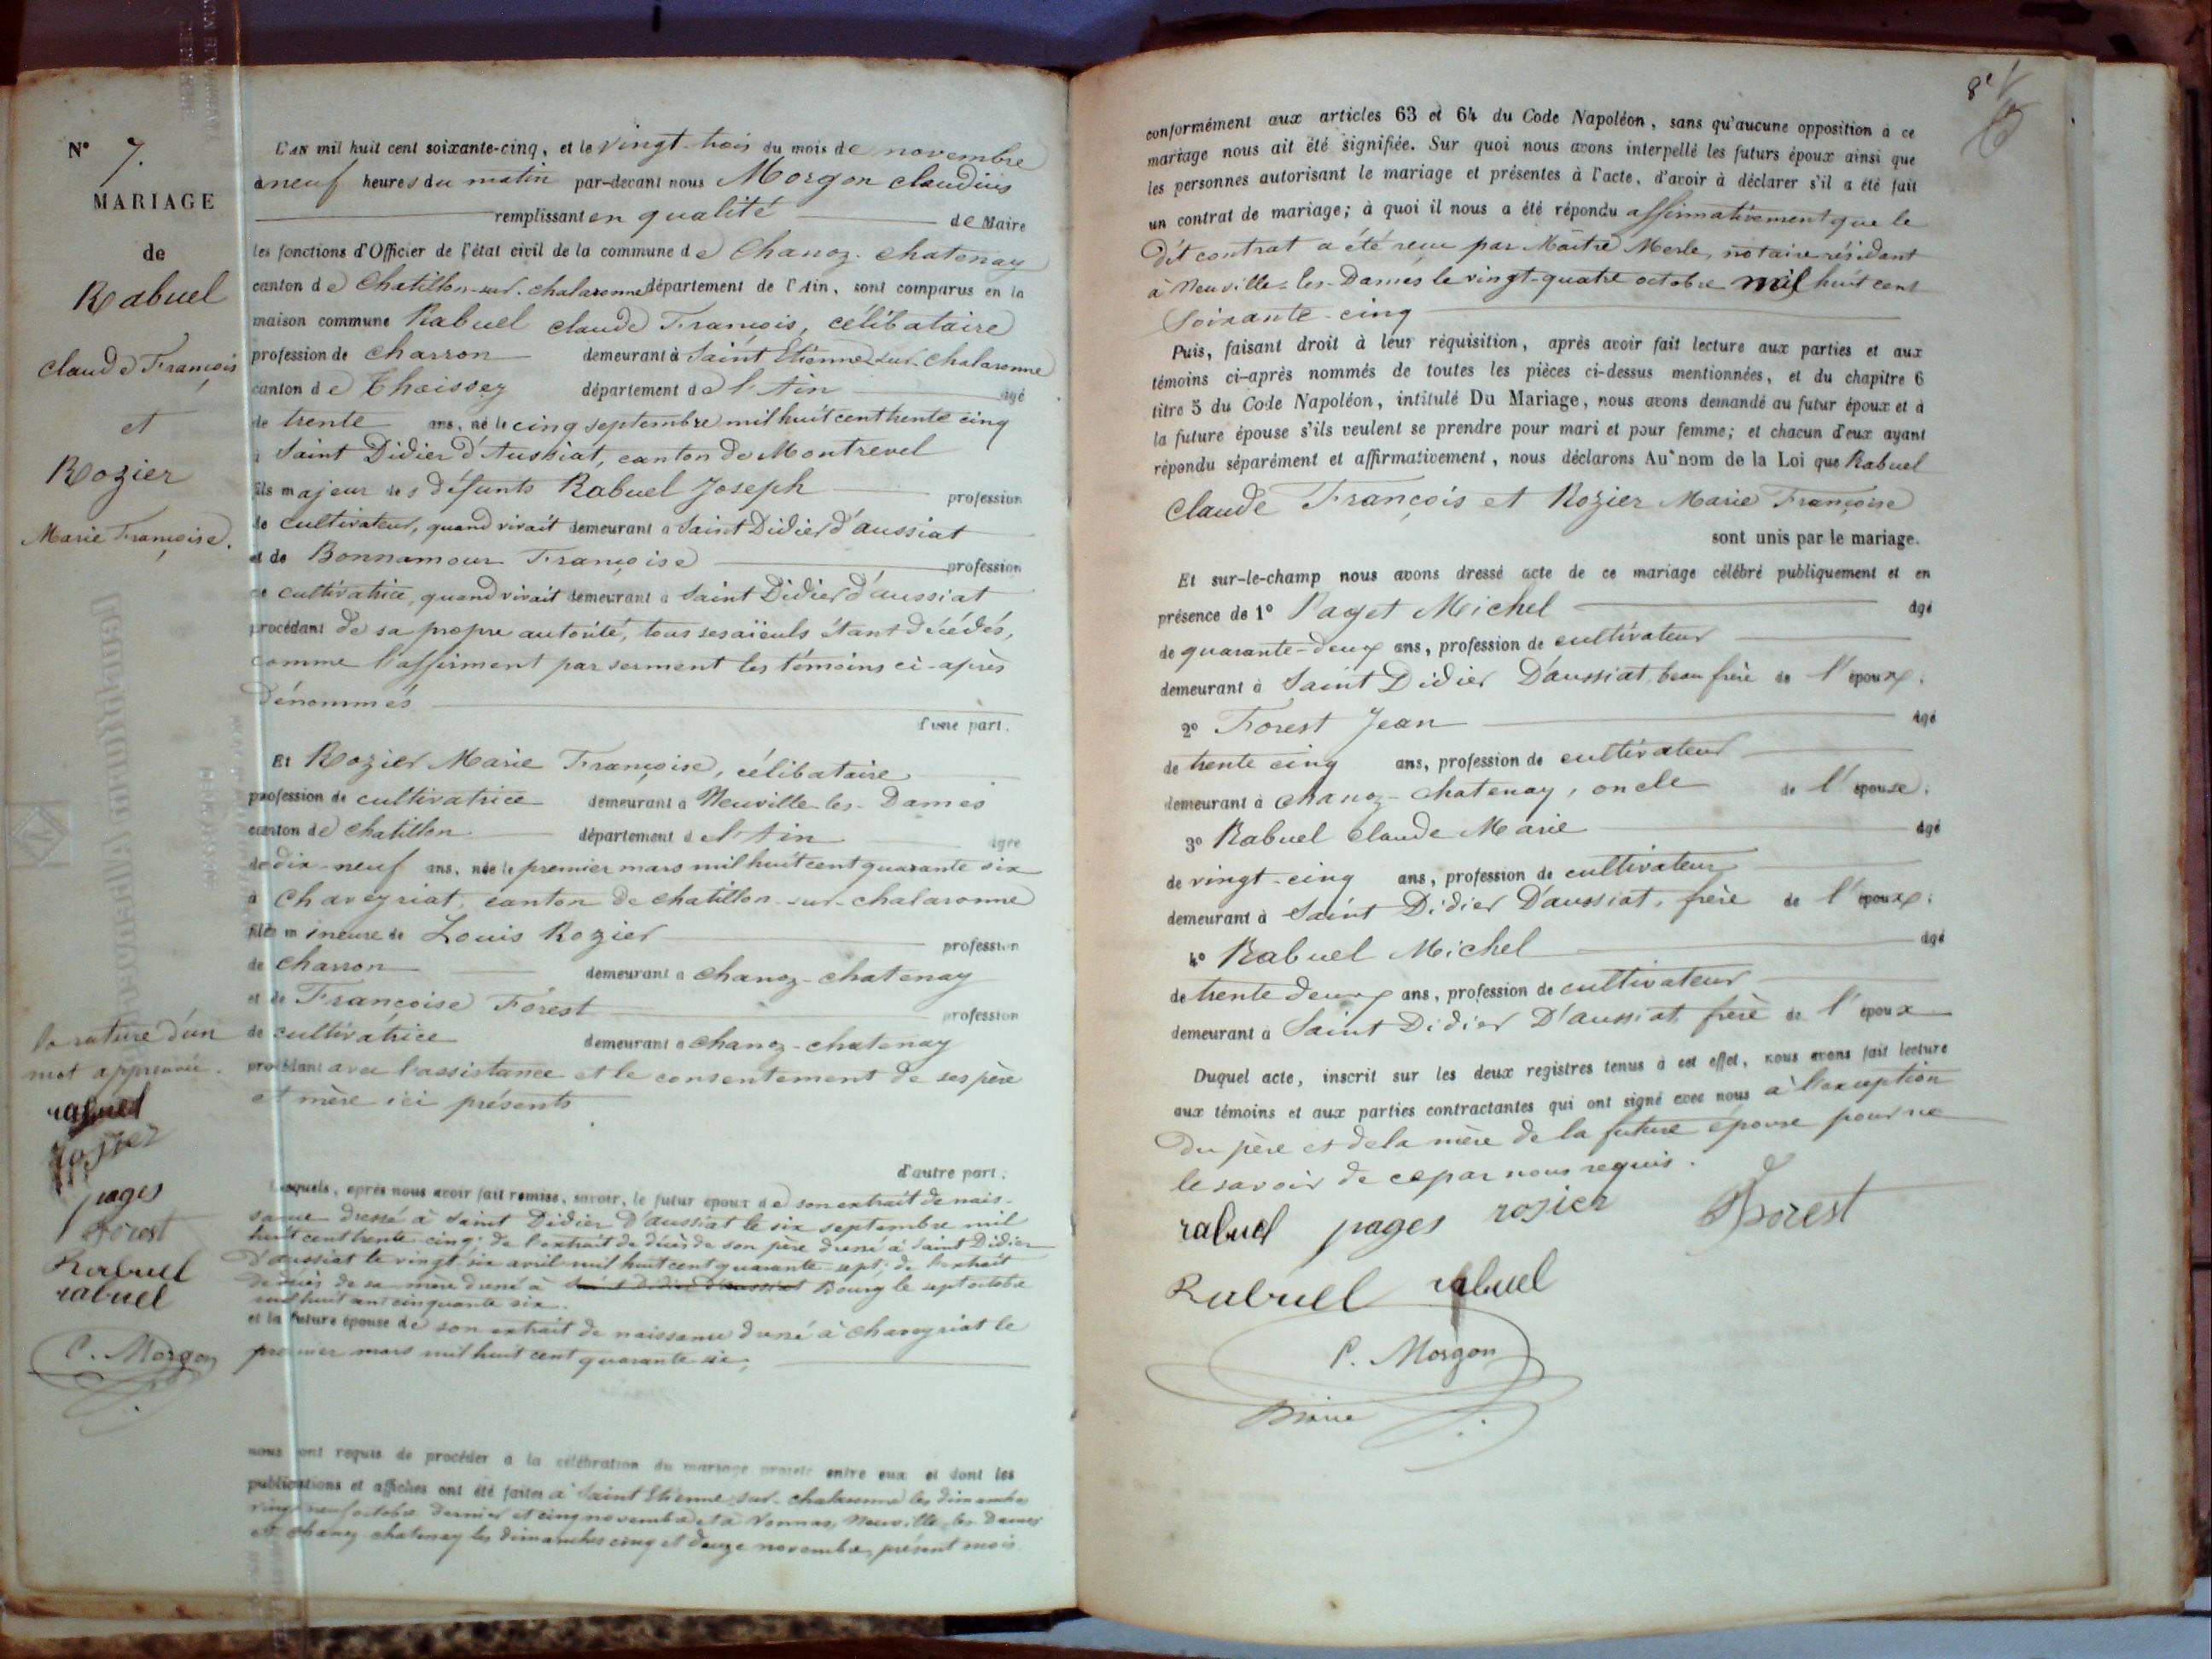 N° 7.
MARIAGE
de
Rabuel
Claude François
et
Rozier
Marie Françoise.
la rature d'un
mot approuvée.
rabuel
rozier
pages
Forest
Rabuel
rabuel
C. Morgon
L'AN mil huit cent soixante-cinq, et le vingt-trois du mois de novembre
à neuf heures du matin par-devant nous Morgon Claudius
remplissant en qualité de Maire
les fonctions d'Officier de l'état civil de la commune de Chanoz-Chatenay
canton de Chatillon-sur-Chalaronne département de l'Ain, sont comparus en la
maison commune Rabuel Claude François, célibataire
profession de charron demeurant à Saint Etienne-sur-Chalaronne
canton de Thoissey département de l'Ain âgé
de trente ans, né le cinq septembre mil huit cent trente cinq
à Saint Didier d'Aussiat, canton de Montrevel
fils majeur des défunts Rabuel Joseph profession
de cultivateur, quand vivait demeurant à Saint Didier d'aussiat
et de Bonnamour Françoise profession
de cultivatrice, quand vivait demeurant à Saint Didier d'aussiat
procédant de sa propre autorité, tous ses aïeuls étant décédés,
comme l'affirment par serment les témoins ci-après
dénommés
d'une part.
Et Rozier Marie Françoise, célibataire
profession de cultivatrice demeurant à Neuville-les-Dames
canton de Chatillon département de l'Ain âgée
de dix-neuf ans, née le premier mars mil huit cent quarante six
à Chaveyriat, canton de Chatillon-sur-Chalaronne
fille mineure de Louis Rozier profession
de charron demeurant à Chanoz-Chatenay
et de Françoise Forest profession
de cultivatrice demeurant à Chanoz-Chatenay
procédant avec l'assistance et le consentement de ses père
et mère ici présents
d'autre part.
Lesquels, après nous avoir fait remise, savoir, le futur époux de son extrait de nais-
sance dressé à Saint Didier D'aussiat le six septembre mil
huit cent trente cinq; de l'extrait de décès de son père dressé à Saint Didier
D'aussiat le vingt six avril mil huit cent quarante sept; de l'extrait
de décès de sa mère dressé à Saint Didier d'aussiat Bourg le sept octobre
mil huit cent cinquante six.
et la future épouse de son extrait de naissance dressé à Chaveyriat le
premier mars mil huit cent quarante six;
nous ont requis de procéder à la célébration du mariage projeté entre eux et dont les
publications et affiches ont été faites à Saint Etienne-sur-Chalaronne les dimanches
vingt neuf octobre dernier et cinq novembre et à Vonnas, Neuville-les-Dames
et Chanoz-Chatenay les dimanches cinq et douze novembre, présent mois.
conformément aux articles 63 et 64 du Code Napoléon, sans qu'aucune opposition à ce
mariage nous ait été signifiée. Sur quoi nous avons interpellé les futurs époux ainsi que
les personnes autorisant le mariage et présentes à l'acte, d'avoir à déclarer s'il a été fait
un contrat de mariage; à quoi il nous a été répondu affirmativement que le
dit contrat a été reçu par Maître Merle, notaire résidant
à Neuville-les-Dames le vingt-quatre octobre mil huit cent
soixante-cinq
Puis, faisant droit à leur réquisition, après avoir fait lecture aux parties et aux
témoins ci-après nommés de toutes les pièces ci-dessus mentionnées, et du chapitre 6
titre 5 du Code Napoléon, intitulé Du Mariage, nous avons demandé au futur époux et à
la future épouse s'ils veulent se prendre pour mari et pour femme; et chacun d'eux ayant
répondu séparément et affirmativement, nous déclarons Au nom de la Loi que Rabuel
Claude François et Rozier Marie Françoise
sont unis par le mariage.
Et sur-le-champ nous avons dressé acte de ce mariage célébré publiquement et en
présence de 1° Paget Michel âgé
de quarante-deux ans, profession de cultivateur
demeurant à Saint Didier D'aussiat, beau frère de l'époux;
2° Forest Jean âgé
de trente cinq ans, profession de cultivateur
demeurant à Chanoz-Chatenay, oncle de l'épouse;
3° Rabuel Claude Marie âgé
de vingt-cinq ans, profession de cultivateur
demeurant à Saint Didier D'aussiat, frère de l'époux;
4° Rabuel Michel âgé
de trente deux ans, profession de cultivateur
demeurant à Saint Didier D'aussiat, frère de l'époux
Duquel acte, inscrit sur les deux registres tenus à cet effet, nous avons fait lecture
aux témoins et aux parties contractantes qui ont signé avec nous à l'exception
du père et de la mère de la future épouse pour ne
le savoir de ce par nous requis.
rabuel pages rosier Forest
Rabuel rabuel
C. Morgon